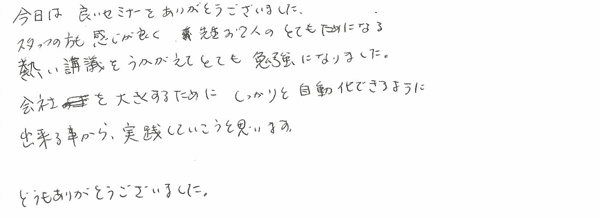 今日は 良いセミナーをありがとうございました.
スタッフの方も 感じが良く 先生お2人の とてもためになる
熱い講議をうかがえてとても 勉強になりました。
会社を大きくするために しっかりと自動化できるように
出来る事から、実践していこうと思います。
どうもありがとうございました。